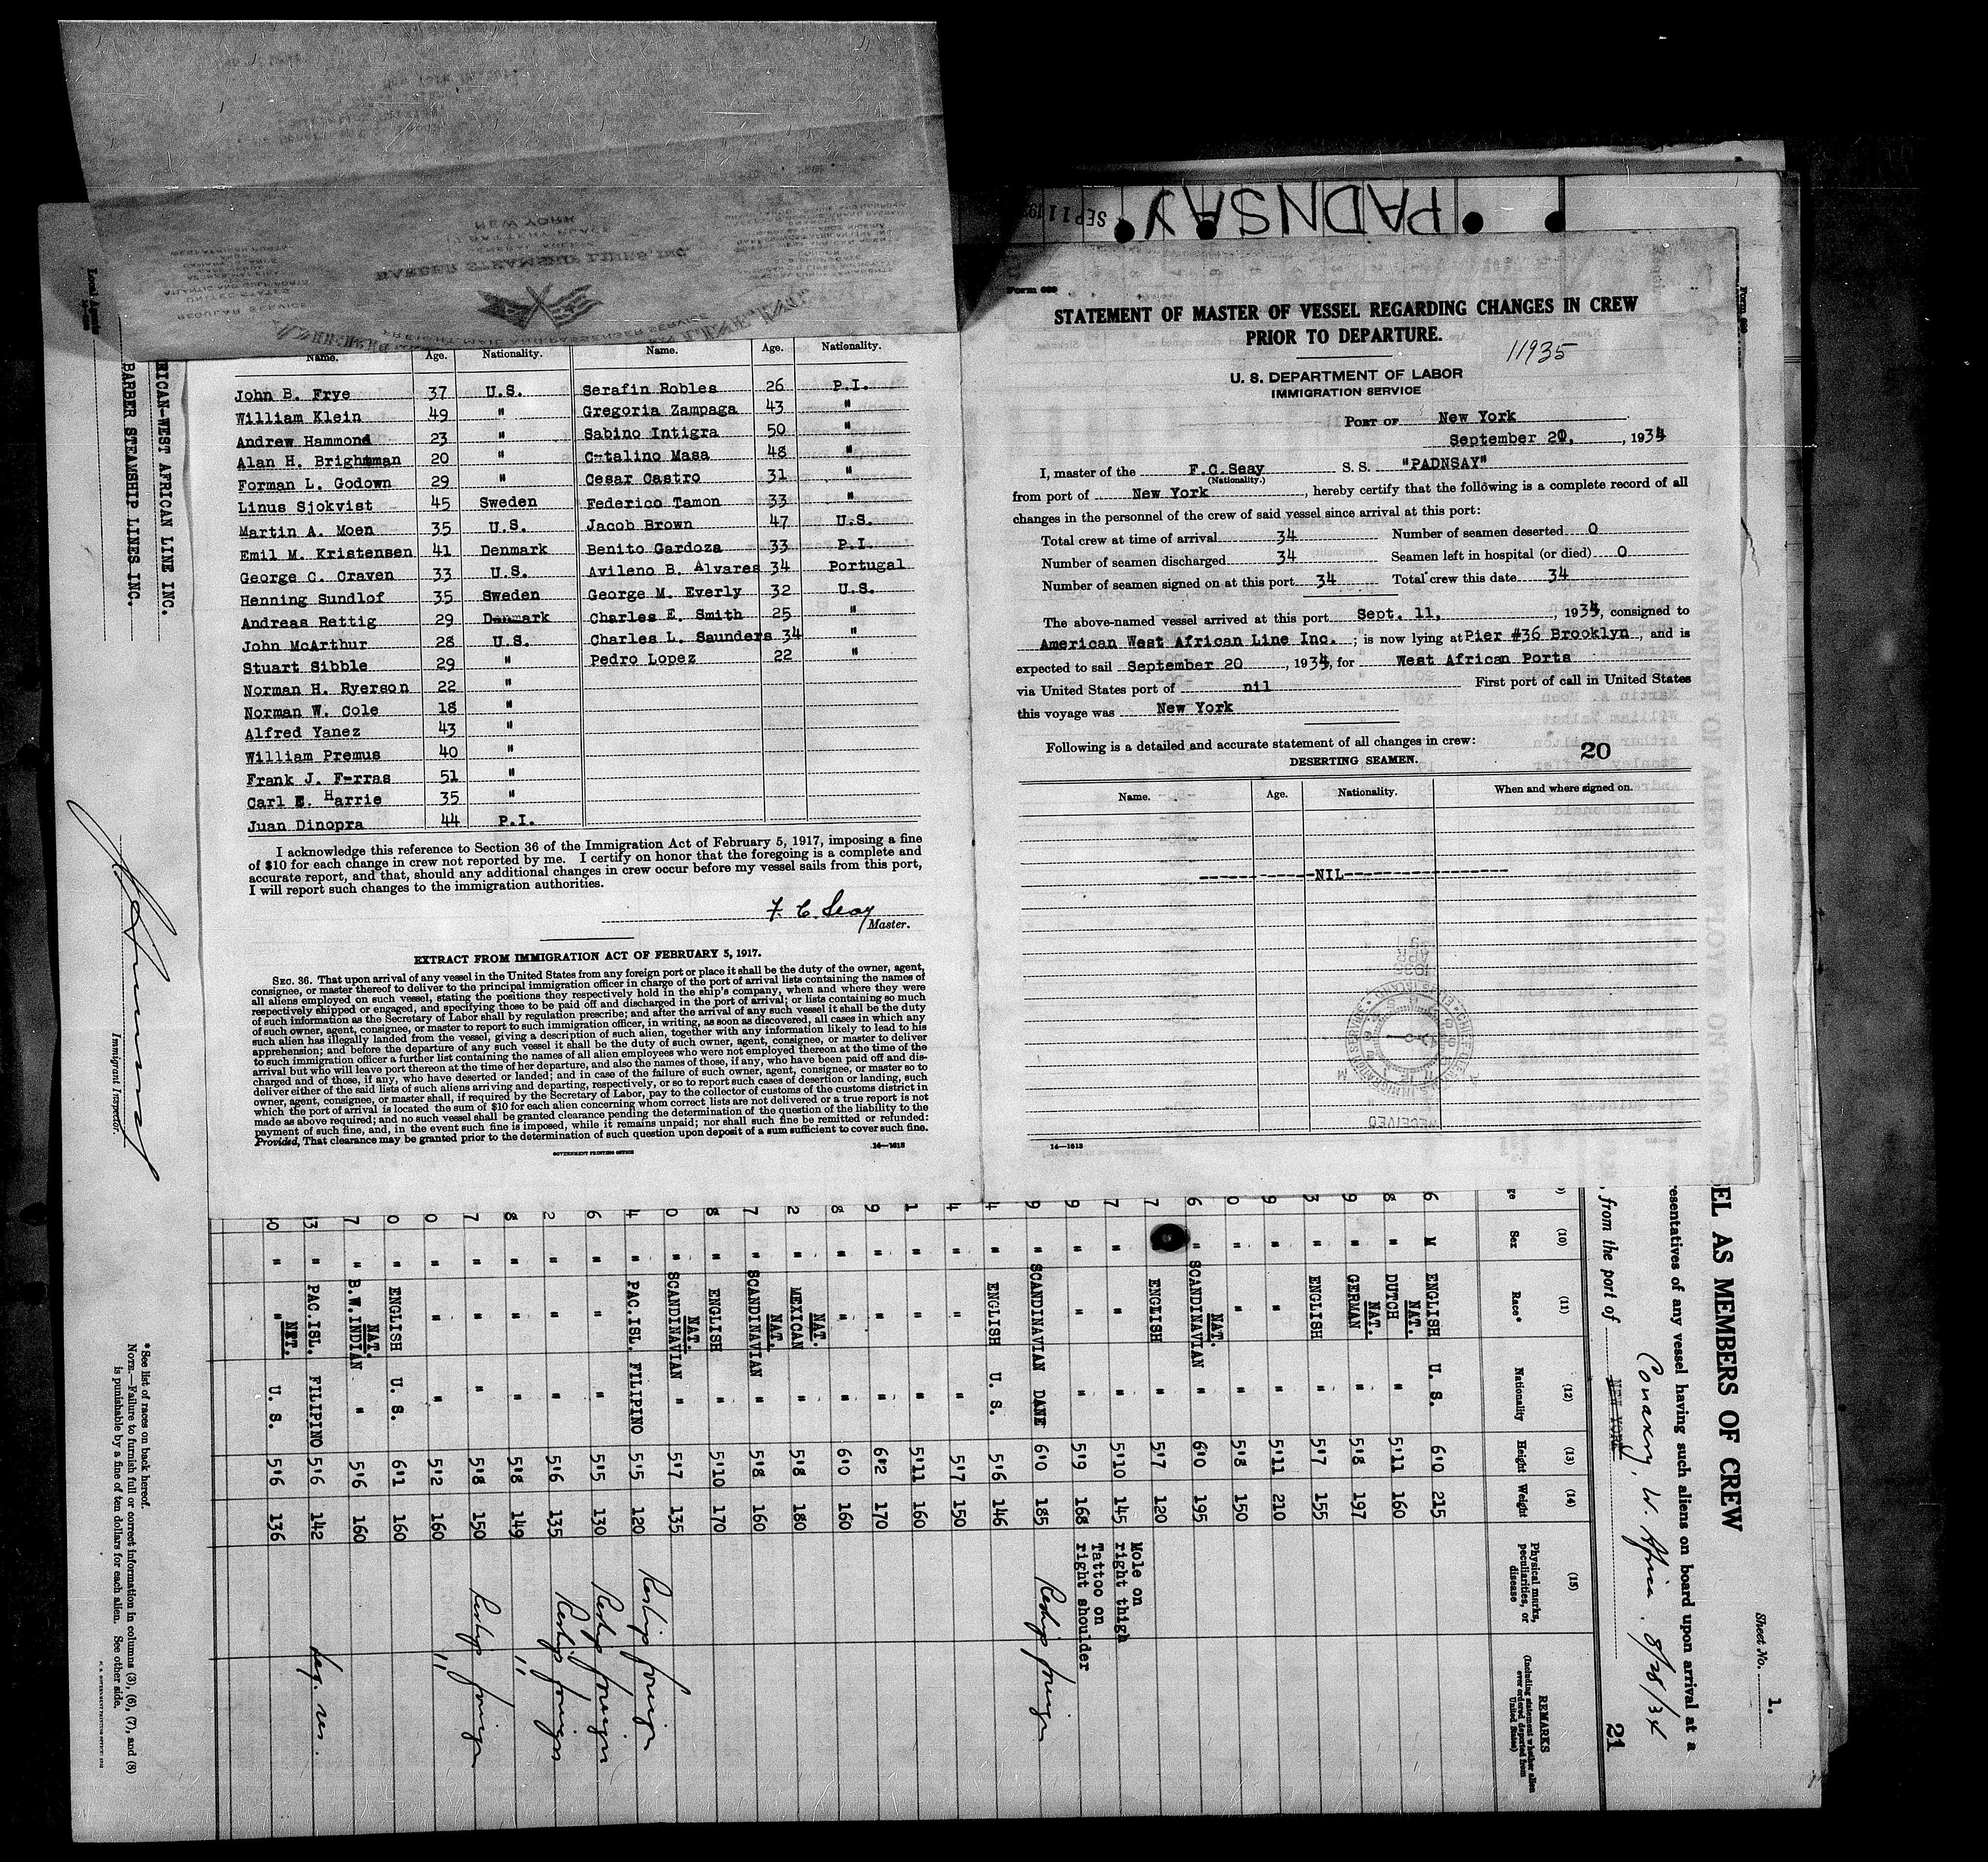 PADNSAY
SEP 11 193
Form 689
STATEMENT OF MASTER OF VESSEL REGARDING CHANGES IN CREW
PRIOR TO DEPARTURE.
11935
U. S. DEPARTMENT OF LABOR
IMMIGRATION SERVICE
PORT OF New York
September 20, , 1934
I, master of the F.C.Seay S. S. "PADNSAY"
(Nationality.)
from port of New York , hereby certify that the following is a complete record of all
changes in the personnel of the crew of said vessel since arrival at this port:
Total crew at time of arrival 34 Number of seamen deserted 0
Number of seamen discharged 34 Seamen left in hospital (or died) 0
Number of seamen signed on at this port 34 Total crew this date 34
The above-named vessel arrived at this port Sept. 11, , 1934, consigned to
American West African Line Inc. ; is now lying at Pier #36 Brooklyn , and is
expected to sail September 20 , 1934, for West African Ports
via United States port of nil First port of call in United States
this voyage was New York
Following is a detailed and accurate statement of all changes in crew:
20
DESERTING SEAMEN.
Name. Age. Nationality. When and where signed on.
------------NIL-----------------
RECEIVED
14—1613
NEW YORK
17 BATTERY PLACE
BARBER STEAMSHIP LINES, INC.
UNITED STATES
REGULAR SERVICE
FREIGHT MAIL AND PASSENGER SERVICE
Name. Age. Nationality. Name. Age. Nationality.
John B. Frye 37 U.S. Serafin Robles 26 P.I.
William Klein 49 " Gregoria Zampaga 43 "
Andrew Hammond 23 " Sabino Intigra 50 "
Alan H. Brightman 20 " C-talino Masa 48 "
Forman L. Godown 29 " Cesar Castro 31 "
Linus Sjokvist 45 Sweden Federico Tamon 33 "
Martin A. Moen 35 U.S. Jacob Brown 47 U.S.
Emil M. Kristensen 41 Denmark Benito Gardoza 33 P.I.
George C. Craven 33 U.S. Avileno B. Alvares 34 Portugal
Henning Sundlof 35 Sweden George M. Everly 32 U.S.
Andreas Rettig 29 Denmark Charles E. Smith 25 "
John McArthur 28 U.S. Charles L. Saunders 34 "
Stuart Sibble 29 " Pedro Lopez 22 "
Norman H. Ryerson 22 "
Norman W. Cole 18 "
Alfred Yanez 43 "
William Premus 40 "
Frank J. F-rras 51 "
Carl E. Harrie 35 "
Juan Dinopra 44 P.I.
I acknowledge this reference to Section 36 of the Immigration Act of February 5, 1917, imposing a fine
of $10 for each change in crew not reported by me. I certify on honor that the foregoing is a complete and
accurate report, and that, should any additional changes in crew occur before my vessel sails from this port,
I will report such changes to the immigration authorities.
F. C. Seay
Master.
EXTRACT FROM IMMIGRATION ACT OF FEBRUARY 5, 1917.
SEC. 36. That upon arrival of any vessel in the United States from any foreign port or place it shall be the duty of the owner, agent,
consignee, or master thereof to deliver to the principal immigration officer in charge of the port of arrival lists containing the names of
all aliens employed on such vessel, stating the positions they respectively hold in the ship's company, when and where they were
respectively shipped or engaged, and specifying those to be paid off and discharged in the port of arrival; or lists containing so much
of such information as the Secretary of Labor shall by regulation prescribe; and after the arrival of any such vessel it shall be the duty
of such owner, agent, consignee, or master to report to such immigration officer, in writing, as soon as discovered, all cases in which any
such alien has illegally landed from the vessel, giving a description of such alien, together with any information likely to lead to his
apprehension; and before the departure of any such vessel it shall be the duty of such owner, agent, consignee, or master to deliver
to such immigration officer a further list containing the names of all alien employees who were not employed thereon at the time of the
arrival but who will leave port thereon at the time of her departure, and also the names of those, if any, who have been paid off and dis-
charged and of those, if any, who have deserted or landed; and in case of the failure of such owner, agent, consignee, or master so to
deliver either of the said lists of such aliens arriving and departing, respectively, or so to report such cases of desertion or landing, such
owner, agent, consignee, or master shall, if required by the Secretary of Labor, pay to the collector of customs of the customs district in
which the port of arrival is located the sum of $10 for each alien concerning whom correct lists are not delivered or a true report is not
made as above required; and no such vessel shall be granted clearance pending the determination of the question of the liability to the
payment of such fine, and, in the event such fine is imposed, while it remains unpaid; nor shall such fine be remitted or refunded:
Provided, That clearance may be granted prior to the determination of such question upon deposit of a sum sufficient to cover such fine.
GOVERNMENT PRINTING OFFICE 14—1613
Sheet No. 1.
SEL AS MEMBERS OF CREW
resentatives of any vessel having such aliens on board upon arrival at a
, from the port of NEW YORK Conakry, W. Africa. 8/28/34
21
(10) (11) (12) (13) (14) (15)
Sex Race* Nationality Height Weight Physical marks, peculiarities, or disease REMARKS (Including statement whether alien ever ordered deported from United States)
6 M ENGLISH U. S. 6'0 215
8 " DUTCH NAT. " 5'11 160
9 " GERMAN NAT. " 5'8 197
3 " ENGLISH " 5'7 155
9 " " " 5'11 210
0 " " " 5'8 150
6 " SCANDINAVIAN NAT. " 6'0 195
ENGLISH " 5'7 120
7 " " " 5'10 145 Mole on right thigh
9 " " " 5'9 168 Tattoo on right shoulder
9 " SCANDINAVIAN DANE 6'0 185 Reship foreign
4 " ENGLISH U. S. 5'6 146
4 " " " 5'7 150
1 " " " 5'11 160
9 " " " 6'2 170
8 " " " 6'0 160
2 " MEXICAN NAT. " 5'8 180
7 " SCANDINAVIAN NAT. " 5'8 160
8 " ENGLISH " 5'10 170
0 " SCANDINAVIAN NAT. " 5'7 135
4 " PAC.ISL. FILIPINO 5'5 120 Reship foreign
6 " " " 5'5 130 Reship foreign
2 " " " 5'6 135 Reship foreign
8 " " " 5'8 149 "
7 " " " 5'8 150 Reship foreign
0 " " " 5'2 160 "
0 " ENGLISH U. S. 6'1 160
7 " B.W.INDIAN NAT. " 5'6 160
33 " PAC.ISL. FILIPINO 5'6 142 Leg. res.
40 " " NET. U. S. 5'6 136
*See list of races on back hereof.
NOTE.—Failure to furnish full or correct information in columns (3), (6), (7), and (8)
is punishable by a fine of ten dollars for each alien. See other side.
RICAN-WEST AFRICAN LINE INC.
BARBER STEAMSHIP LINES INC.
Local Agents
Immigrant Inspector.